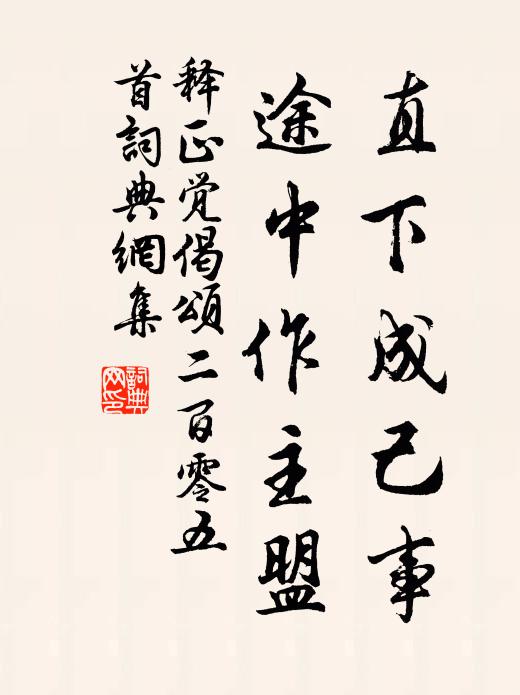 直下成己事
途中作主盟
释正觉偈颂二百零五
首詞典網集
詞典
网印